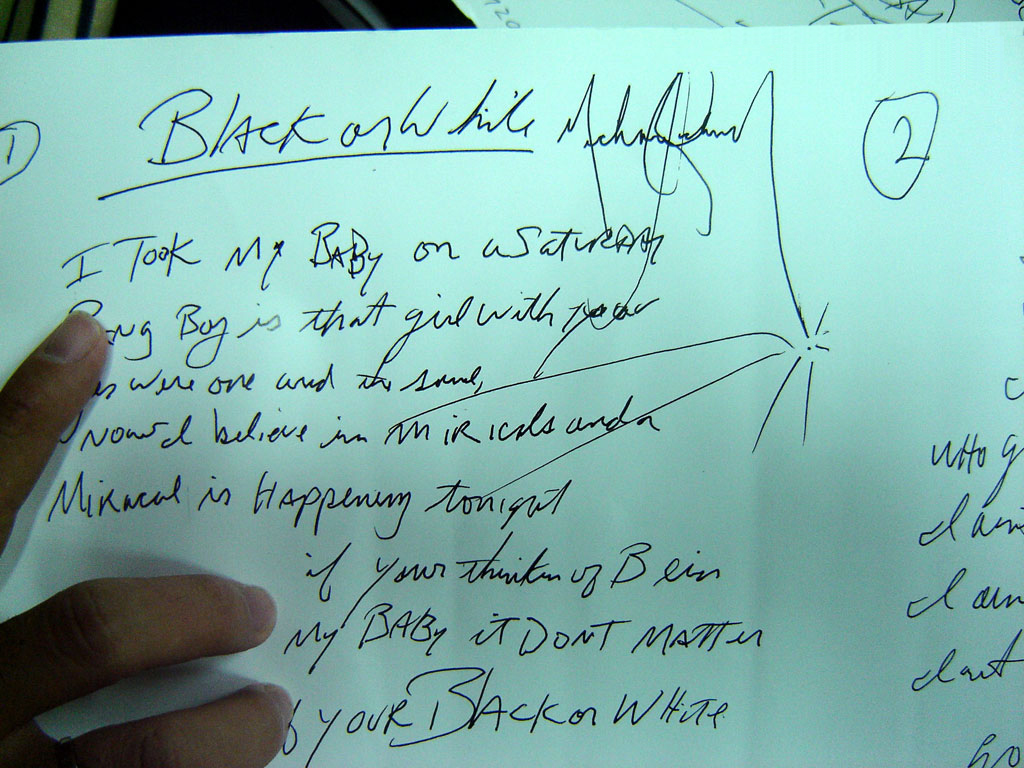 1 Black or White Michael Jackson 2
I Took My BABy on a Saturday
Bang Boy is that girl with you
yes were one and the same,
now I believe in MiRicals and a
MiRacal is Happening tonight
if your thinkin of Bein
My BABy it DonT MaTTer
if yOUR BLack or White
WHO
I ain
I ain
I aint